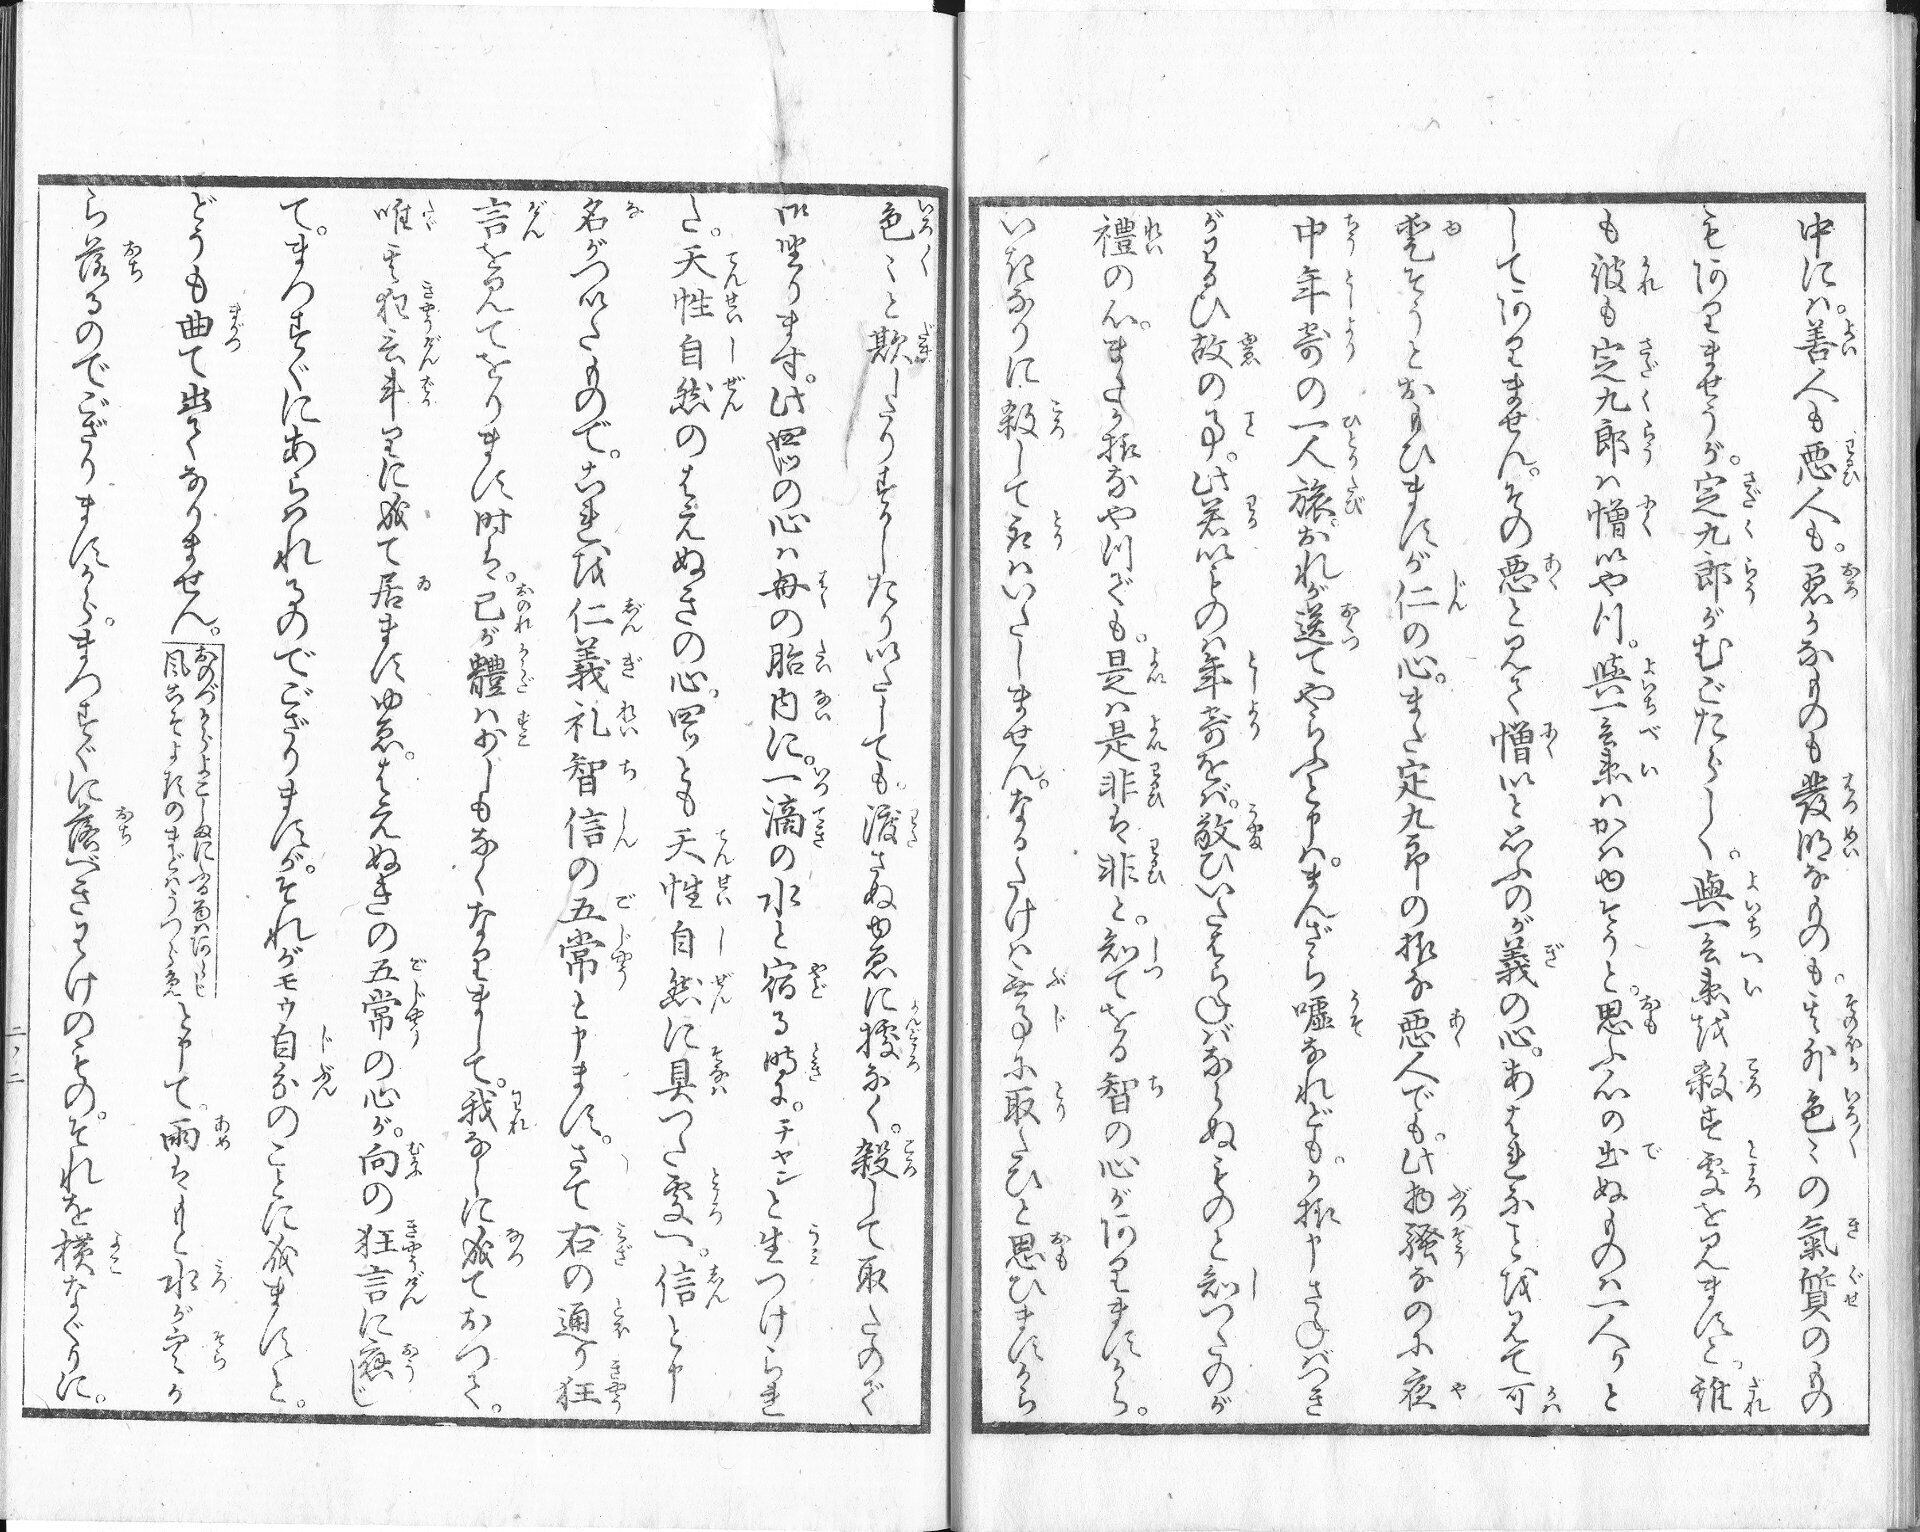 中には。善人も悪人も。愚かなものも發明なものも。其外色〻の氣質のもの
もござりませうが。定九郎がむごたらしく。與一兵衛を殺す処を見ますと。誰
も彼も定九郎は憎いやつ。與一兵衛はかはゆそうと。思ふ心の出ぬものは一人りと
してござりません。その悪と見て憎いと思ふのが義の心。あはれなことを見て可
愛そうとおもひますが仁の心。また定九郎の様な悪人でも。此物騒なのに夜
中年寄の一人旅。おれが送てやらふと申は。まんざら嘘なれども。か様申さねばつき
がわるひ故の事。此若いものは年寄をば。敬ひいたはらねばならぬものと知つたのが
禮の心。またか様なやつでも。是は是非は非と。知てをる智の心がござりますから。
いきなりに殺して取はいたしません。なるたけは無事に取たひと思ひますから
色〻と欺したりすかしたりいたしても。渡さぬゆゑに據なく。殺して取たので
御坐ります。此四つの心は母の胎内に。一滴の水と宿る時に。チヤンと生つけられ
た。天性自然のはえぬきの心。四ツとも天性自然に具つた処へ。信と申
名がついたもので。これを仁義礼智信の五常と申ます。さて右の通り狂
言を見てをります時は。己が體は少しもなくなりまして。我なしに成ておつて。
唯其狂言斗りに成て居ますゆゑ。はえぬきの五常の心が。向の狂言に應じ
て。まつすぐにあらはれるのでござりますが。それがモウ自分のことに成ますと。
どうも曲て出てなりません。おのづからよこしまにふる雨はあらじ風こそよたのまどはうつらめと申て。雨はもと水が空か
ら落るのでござりますから。まつすぐに落べきはづけのもの。それを横なぐりに。